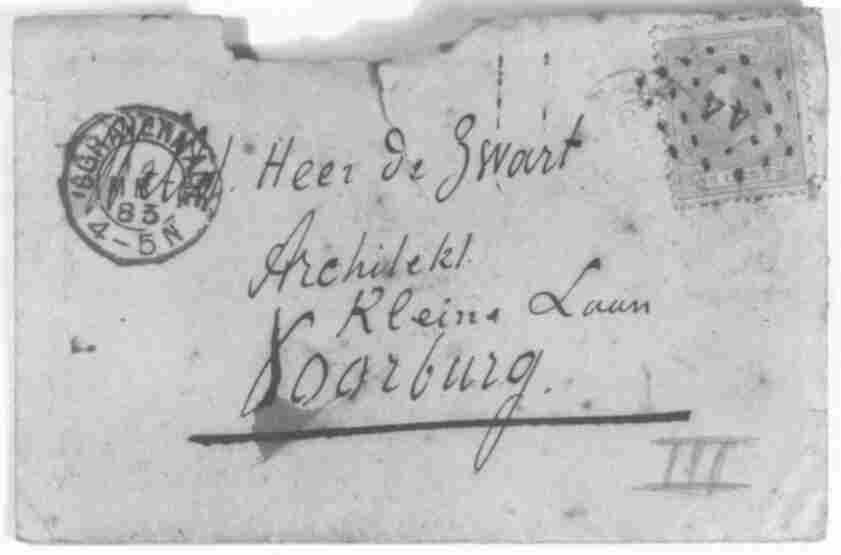 'SGRAVENHAGE
83
4-5N
44
Heer de Zwart
Architekt.
Kleine Laan
Voorburg.
III